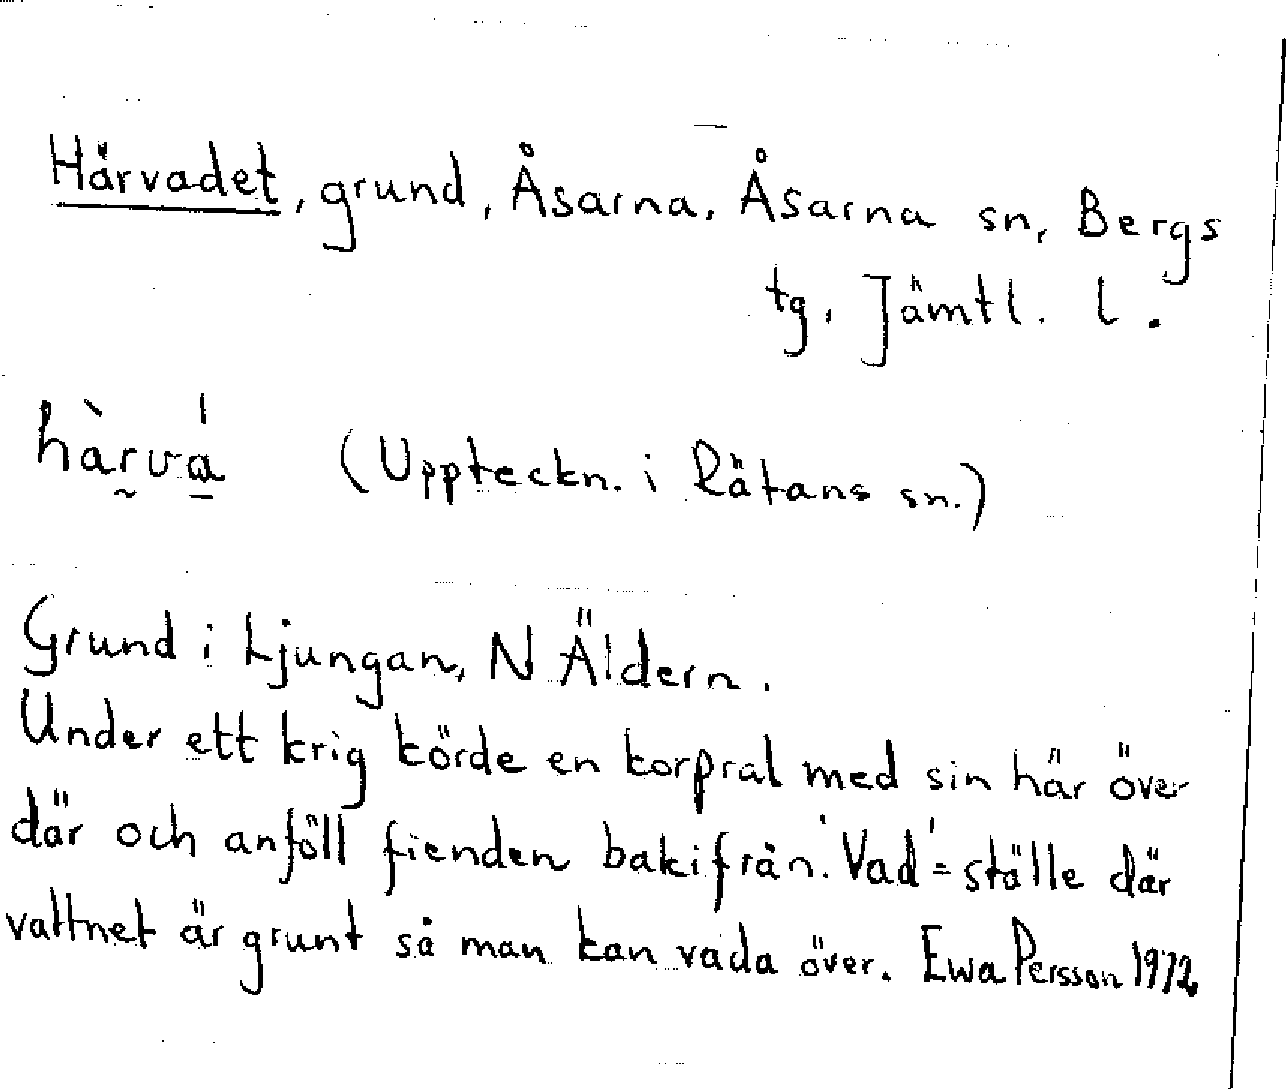 Härvadet, grund, Åsarna, Åsarna sn, Bergs
tg, Jämtl. l.
hàrvá (Uppteckn. i Rätans sn.)
Grund i Ljungan, N Äldern.
Under ett krig körde en korpral med sin här över
där och anföll fienden bakifrån. 'Vad' = ställe där
vattnet är grunt så man kan vada över. Ewa Persson 1972